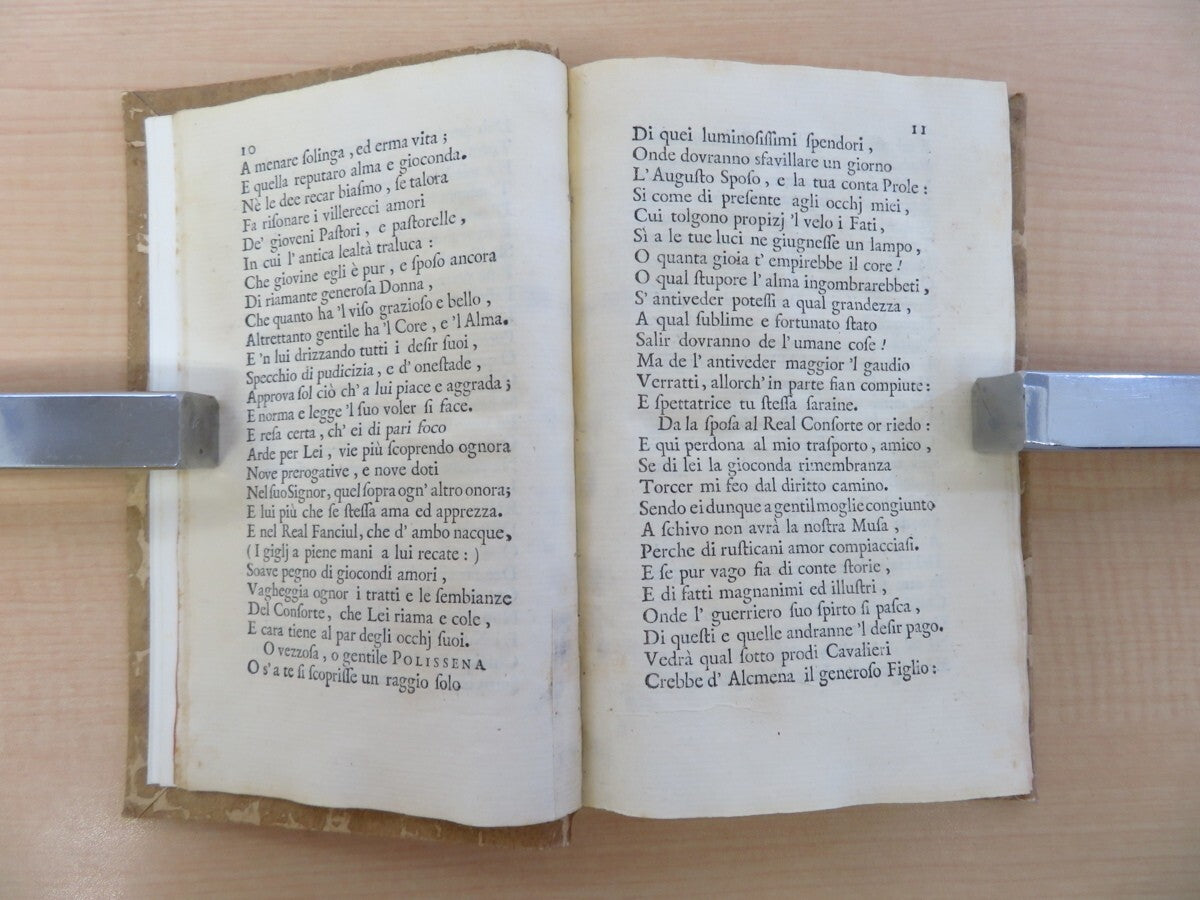 10
A menare ſolinga , ed erma vita ;
E quella reputaro alma e gioconda.
Nè le dee recar biaſmo , ſe talora
Fa riſonare i villerecci amori
De' gioveni Paſtori , e paſtorelle ,
In cui l' antica lealtà traluca :
Che giovine egli è pur , e ſpoſo ancora
Di riamante generoſa Donna ,
Che quanto ha 'l viſo grazioſo e bello ,
Altrettanto gentile ha 'l Core , e 'l Alma.
E 'n lui drizzando tutti i deſir ſuoi ,
Specchio di pudicizia , e d' oneſtade ,
Approva ſol ciò ch' a lui piace e aggrada ;
E norma e legge 'l ſuo voler ſi face.
E reſa certa , ch' ei di pari foco
Arde per Lei , vie più ſcoprendo ognora
Nove prerogative , e nove doti
Nel ſuo Signor, quel ſopra ogn' altro onora;
E lui più che ſe ſteſſa ama ed apprezza.
E nel Real Fanciul, che d' ambo nacque,
( I giglj a piene mani a lui recate : )
Soave pegno di giocondi amori ,
Vagheggia ognor i tratti e le ſembianze
Del Conſorte, che Lei riama e cole ,
E cara tiene al par degli occhj ſuoi.
O vezzoſa, o gentile POLISSENA
O s' a te ſi ſcopriſſe un raggio ſolo
11
Di quei luminoſiſſimi ſpendori ,
Onde dovranno sfavillare un giorno
L' Auguſto Spoſo , e la tua conta Prole :
Si come di preſente agli occhj miei ,
Cui tolgono propizj 'l velo i Fati ,
Sì a le tue luci ne giugneſſe un lampo ,
O quanta gioia t' empirebbe il core !
O qual ſtupore l' alma ingombrarebbeti ,
S' antiveder poteſſi a qual grandezza ,
A qual ſublime e fortunato ſtato
Salir dovranno de l' umane coſe !
Ma de l' antiveder maggior 'l gaudio
Verratti, allorch' in parte fian compiute :
E ſpettatrice tu ſteſſa ſaraine.
Da la ſpoſa al Real Conſorte or riedo :
E qui perdona al mio traſporto, amico ,
Se di lei la gioconda rimembranza
Torcer mi feo dal diritto camino.
Sendo ei dunque a gentil moglie congiunto
A ſchivo non avrà la noſtra Muſa ,
Perche di ruſticani amor compiacciaſi.
E ſe pur vago fia di conte ſtorie ,
E di fatti magnanimi ed illuſtri ,
Onde l' guerriero ſuo ſpirto ſi paſca ,
Di queſti e quelle andranne 'l deſir pago.
Vedrà qual ſotto prodi Cavalieri
Crebbe d' Alcmena il generoſo Figlio :